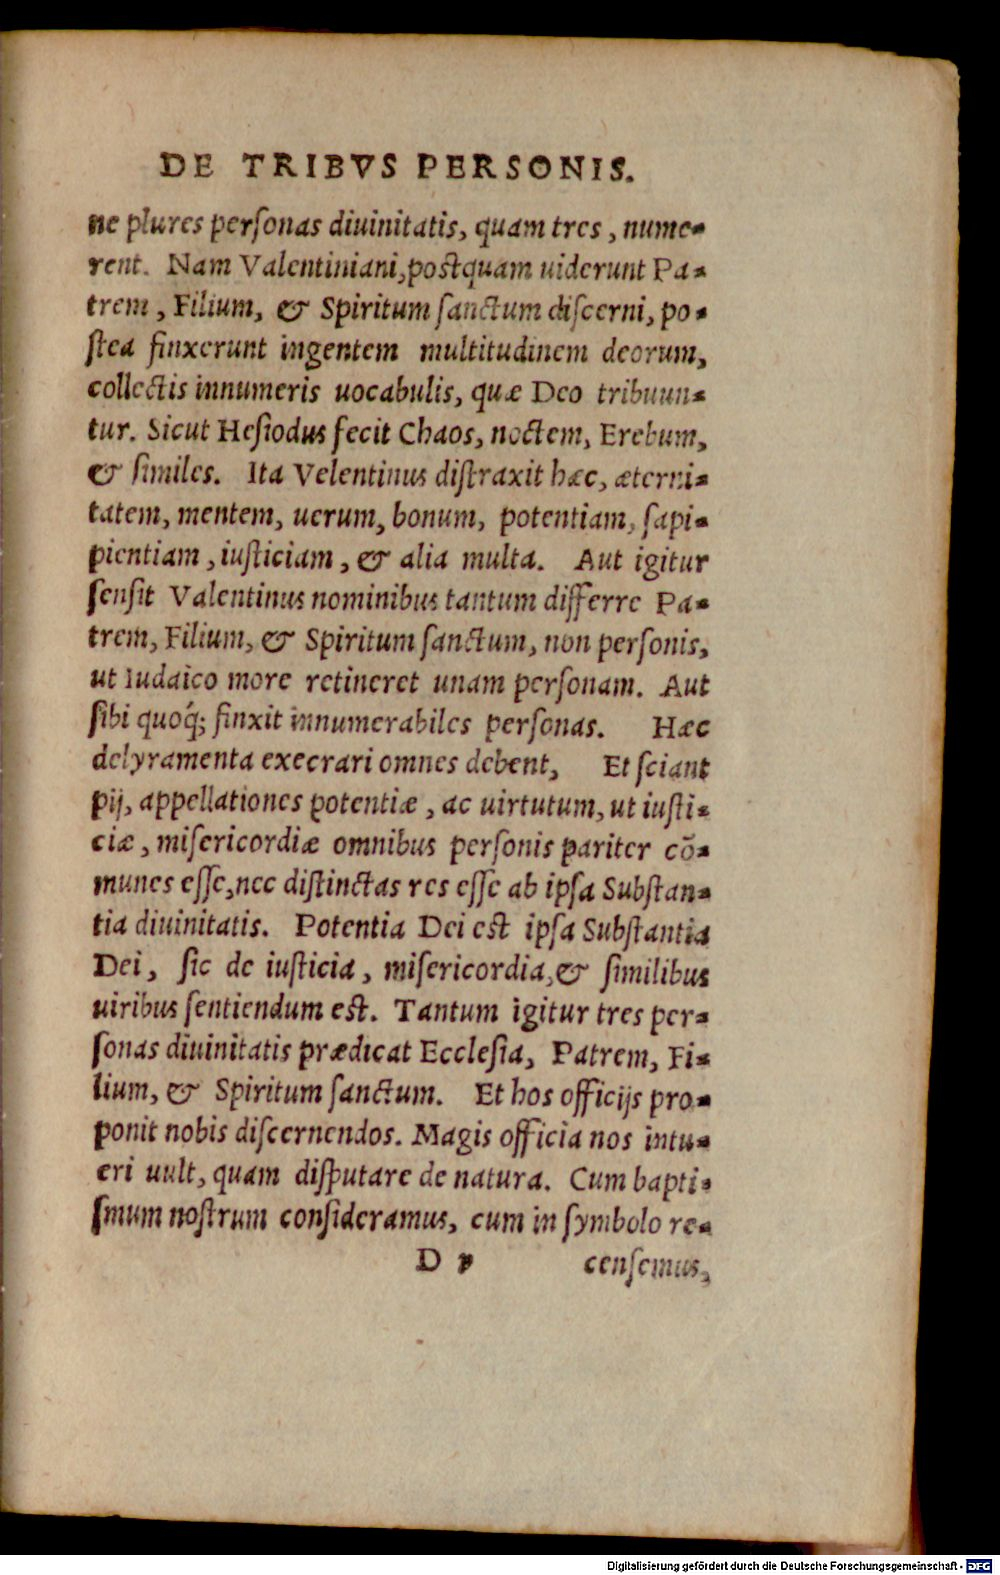 DE TRIBVS PERSONIS.
ne plures perſonas diuinitatis, quam tres, nume-
rent. Nam Valentiniani, postquam uiderunt Pa-
trem, Filium, & Spiritum ſanctum diſcerni, po-
ſtea finxerunt ingentem multitudinem deorum,
collectis innumeris uocabulis, quæ Deo tribuun-
tur. Sicut Heſiodus fecit Chaos, noctem, Erebum,
& ſimiles. Ita Velentinus diſtraxit hæc, æterni-
tatem, mentem, uerum, bonum, potentiam, ſapi-
pientiam, iuſticiam, & alia multa. Aut igitur
ſenſit Valentinus nominibus tantum differre Pa-
trem, Filium, & Spiritum ſanctum, non perſonis,
ut Iudaico more retineret unam perſonam. Aut
ſibi quoq́; finxit innumerabiles perſonas. Hæc
delyramenta execrari omnes debent, Et ſciant
pij, appellationes potentiæ, ac uirtutum, ut iuſti-
ciæ, miſericordiæ omnibus perſonis pariter cõ-
munes eſſe, nec diſtinctas res eſſe ab ipſa Subſtan-
tia diuinitatis. Potentia Dei est ipſa Subſtantia
Dei, ſic de iuſticia, miſericordia, & ſimilibus
uiribus ſentiendum est. Tantum igitur tres per-
ſonas diuinitatis prædicat Eccleſia, Patrem, Fi-
lium, & Spiritum ſanctum. Et hos officijs pro-
ponit nobis diſcernendos. Magis officia nos intu-
eri uult, quam diſputare de natura. Cum bapti-
ſmum noſtrum conſideramus, cum in ſymbolo re-
D
cenſemus,
Digitalisierung gefördert durch die Deutsche Forschungsgemeinschaft - DFG